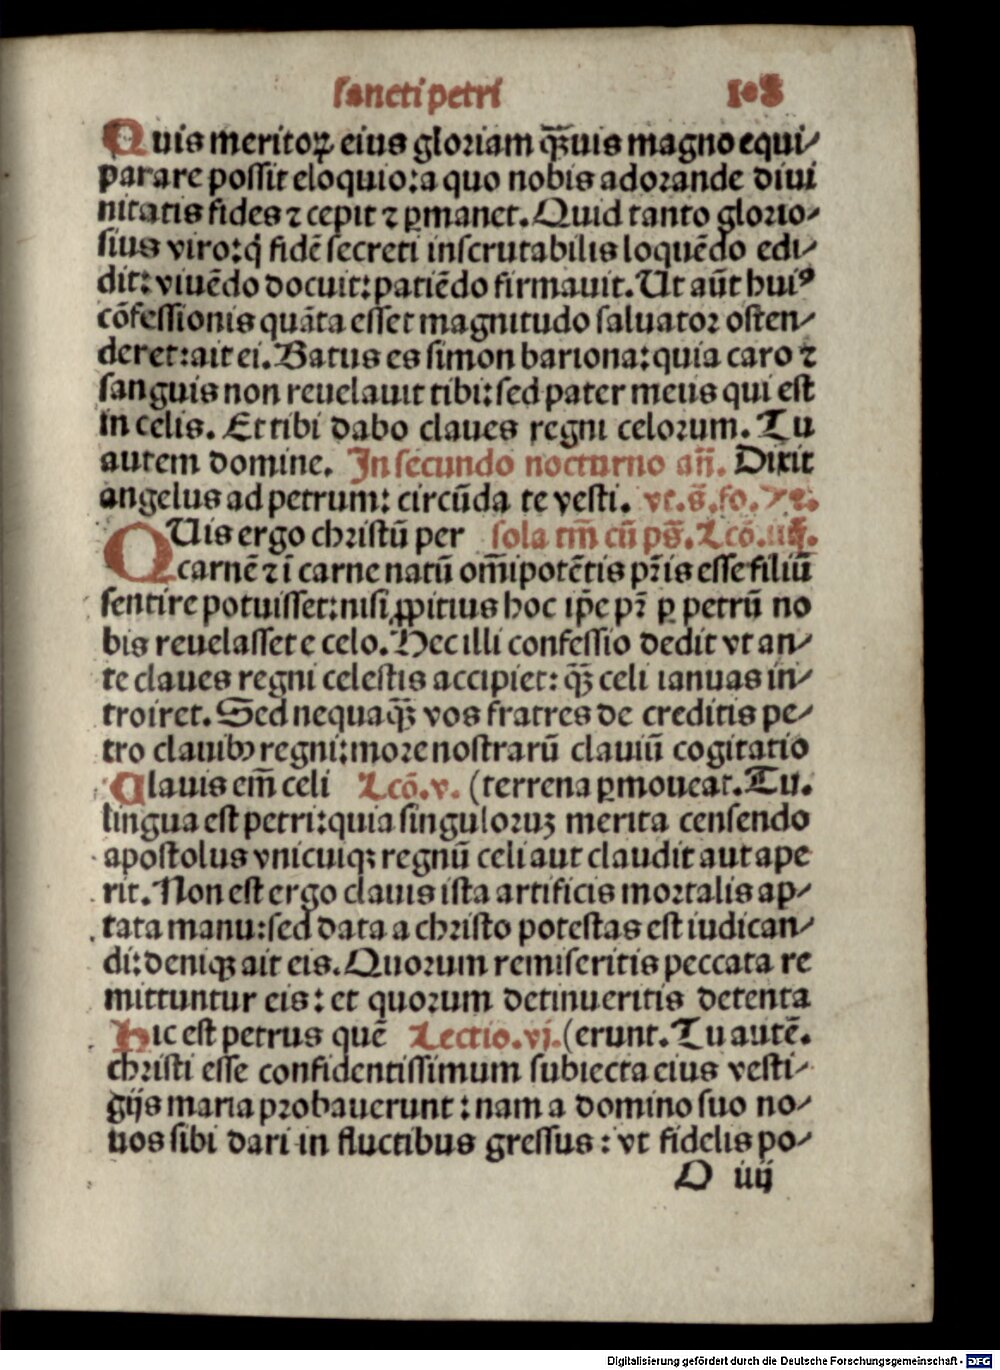 sancti petri 108
Quis meritoꝝ eius gloriam qͣꝫuis magno equi⸗
parare possit eloquio: a quo nobis adorande diui
nitatis fides ⁊ cepit ⁊ ꝑmanet. Quid tanto glorio⸗
sius viro: q̇ fidē secreti inscrutabilis loquēdo edi⸗
dit: viuēdo docuit: patiēdo firmauit. Ut aūt huiꝰ
cōfessionis quāta esset magnitudo saluator osten⸗
deret: ait ei. Batus es simon bariona: quia caro ⁊
sanguis non reuelauit tibi: sed pater meus qui est
in celis. Et tibi dabo claues regni celorum. Tu
autem domine. In secundo nocturno añ. Dixit
angelus ad petrum: circūda te vesti. vt. s̄. fo. 72.
QUis ergo christū per sola tm̄ cū ps̄. Lcō. iiij.
carnē ⁊ ī carne natū om̄ipotētis pr̄is esse filiū
sentire potuisset: nisi ꝓpitius hoc ip̄e pr̄ ꝑ petrū no
bis reuelasset e celo. Hec illi confessio dedit vt an⸗
te claues regni celestis acciperet: qͣꝫ celi ianuas in⸗
troiret. Sed nequaqͣꝫ vos fratres de creditis pe⸗
tro clauibꝫ regni: more nostrarū clauiū cogitatio
Clauis em̄ celi Lcō. v. (terrena ꝑmoueat. Tu.
lingua est petri: quia singuloruꝫ merita censendo
apostolus vnicuiqꝫ regnū celi aut claudit aut ape
rit. Non est ergo clauis ista artificis mortalis ap⸗
tata manu: sed data a christo potestas est iudican⸗
di: deniqꝫ ait eis. Quorum remiseritis peccata re
mittuntur eis: et quorum detinueritis detenta
Hic est petrus quē Lectio. vj. (erunt. Tu autē.
christi esse confidentissimum subiecta eius vesti⸗
gijs maria probauerunt: nam a domino suo no⸗
uos sibi dari in fluctibus gressus: vt fidelis po⸗
O iiij
Digitalisierung gefördert durch die Deutsche Forschungsgemeinschaft - DFG